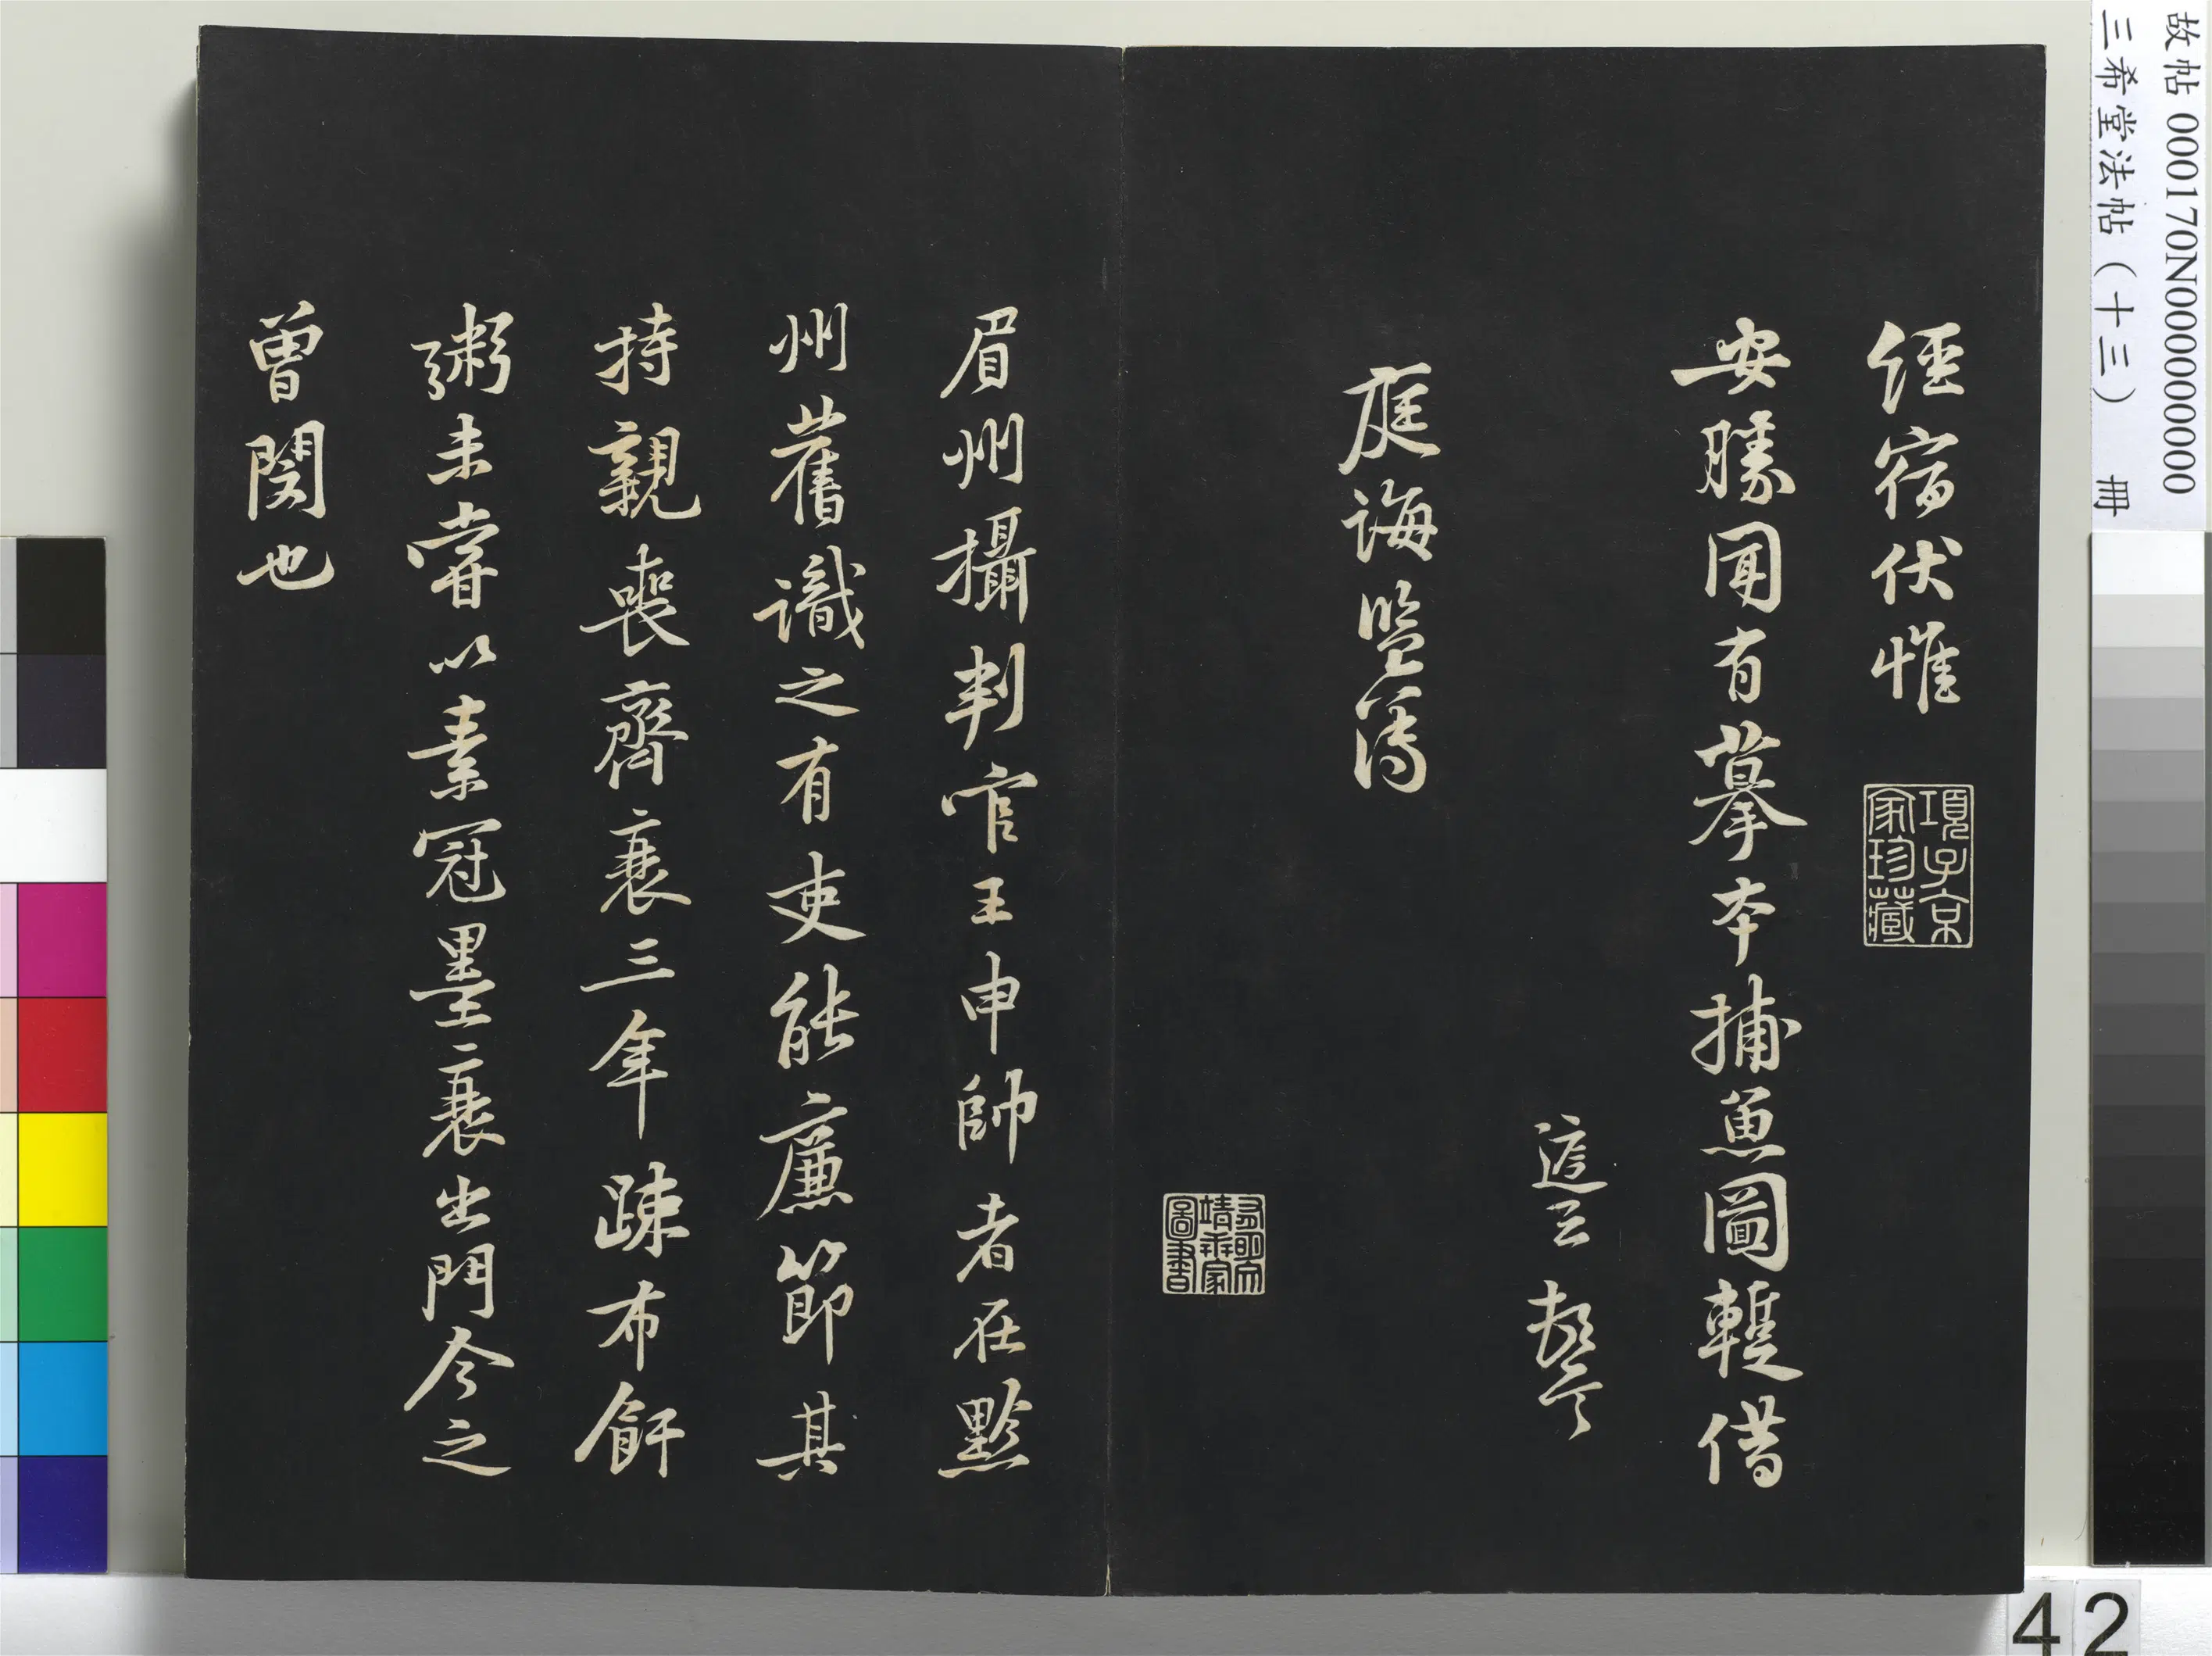 故帖 000170N000000000
三希堂法帖（十三） 冊
經宿伏惟
項子京
家珍藏
安勝聞有摹本捕魚圖輒借
庭堅頓首
庭誨監簿
圖書
眉州攝判官王申帥者在黔
州舊識之有吏能廉節其
持親喪齊衰三年疎布飦
粥未嘗以素冠墨衰出門今之
曾閔也
42